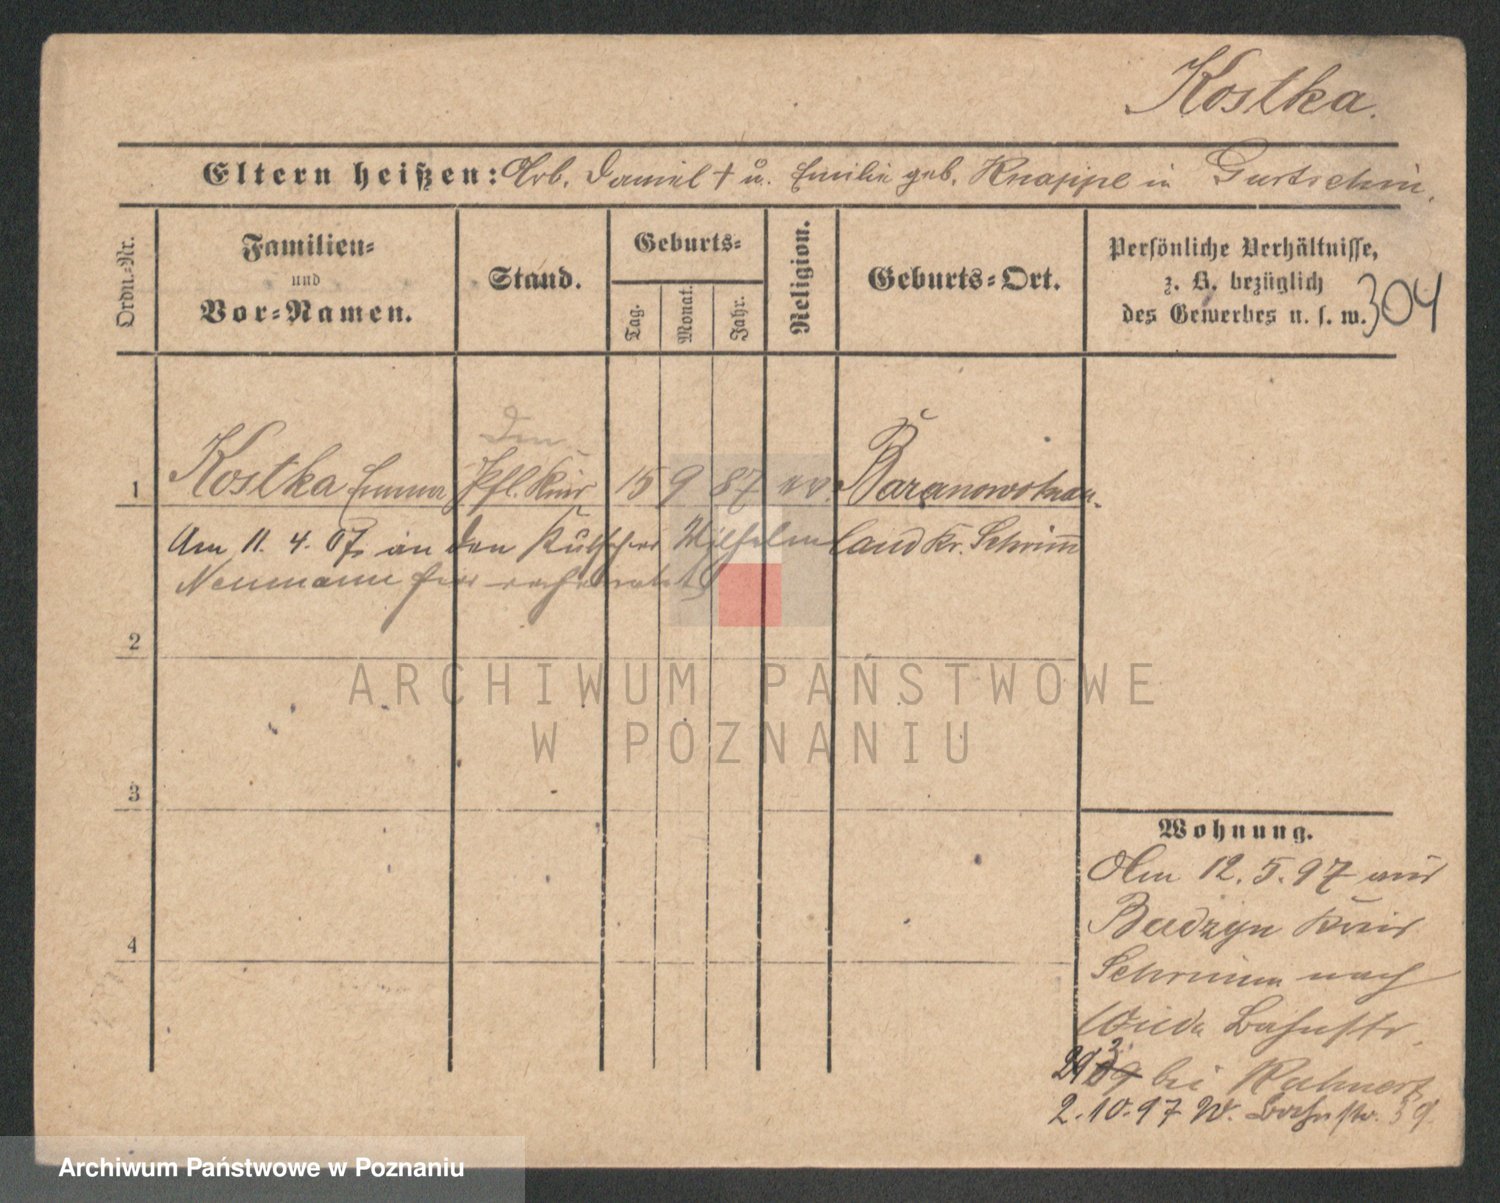 Kostka.
Eltern heißen: Arb. Daniel † u. Emilie geb. Knappe in Gurtschin.
Ordn.-Nr.
Familien-
und
Vor-Namen.
Stand.
Geburts-
Tag.
Monat.
Jahr.
Religion.
Geburts-Ort.
Persönliche Verhältnisse,
z. B. bezüglich
des Gewerbes u. s. w.
304
1 Kostka Emma 15 9 87 ev.
land Kr. Schrimm
Am 11. 4. 07 an den Kutscher Wilhelm
Neumann hier verheiratet
2
3
4
ARCHIWUM PAŃSTWOWE
W POZNANIU
Wohnung.
Am 12. 5. 97 aus
Badzyn Kreis
Schrimm nach
Wilda Bahnstr.
bei
2. 10. 97 W. Bahnstr. 39.
Archiwum Państwowe w Poznaniu